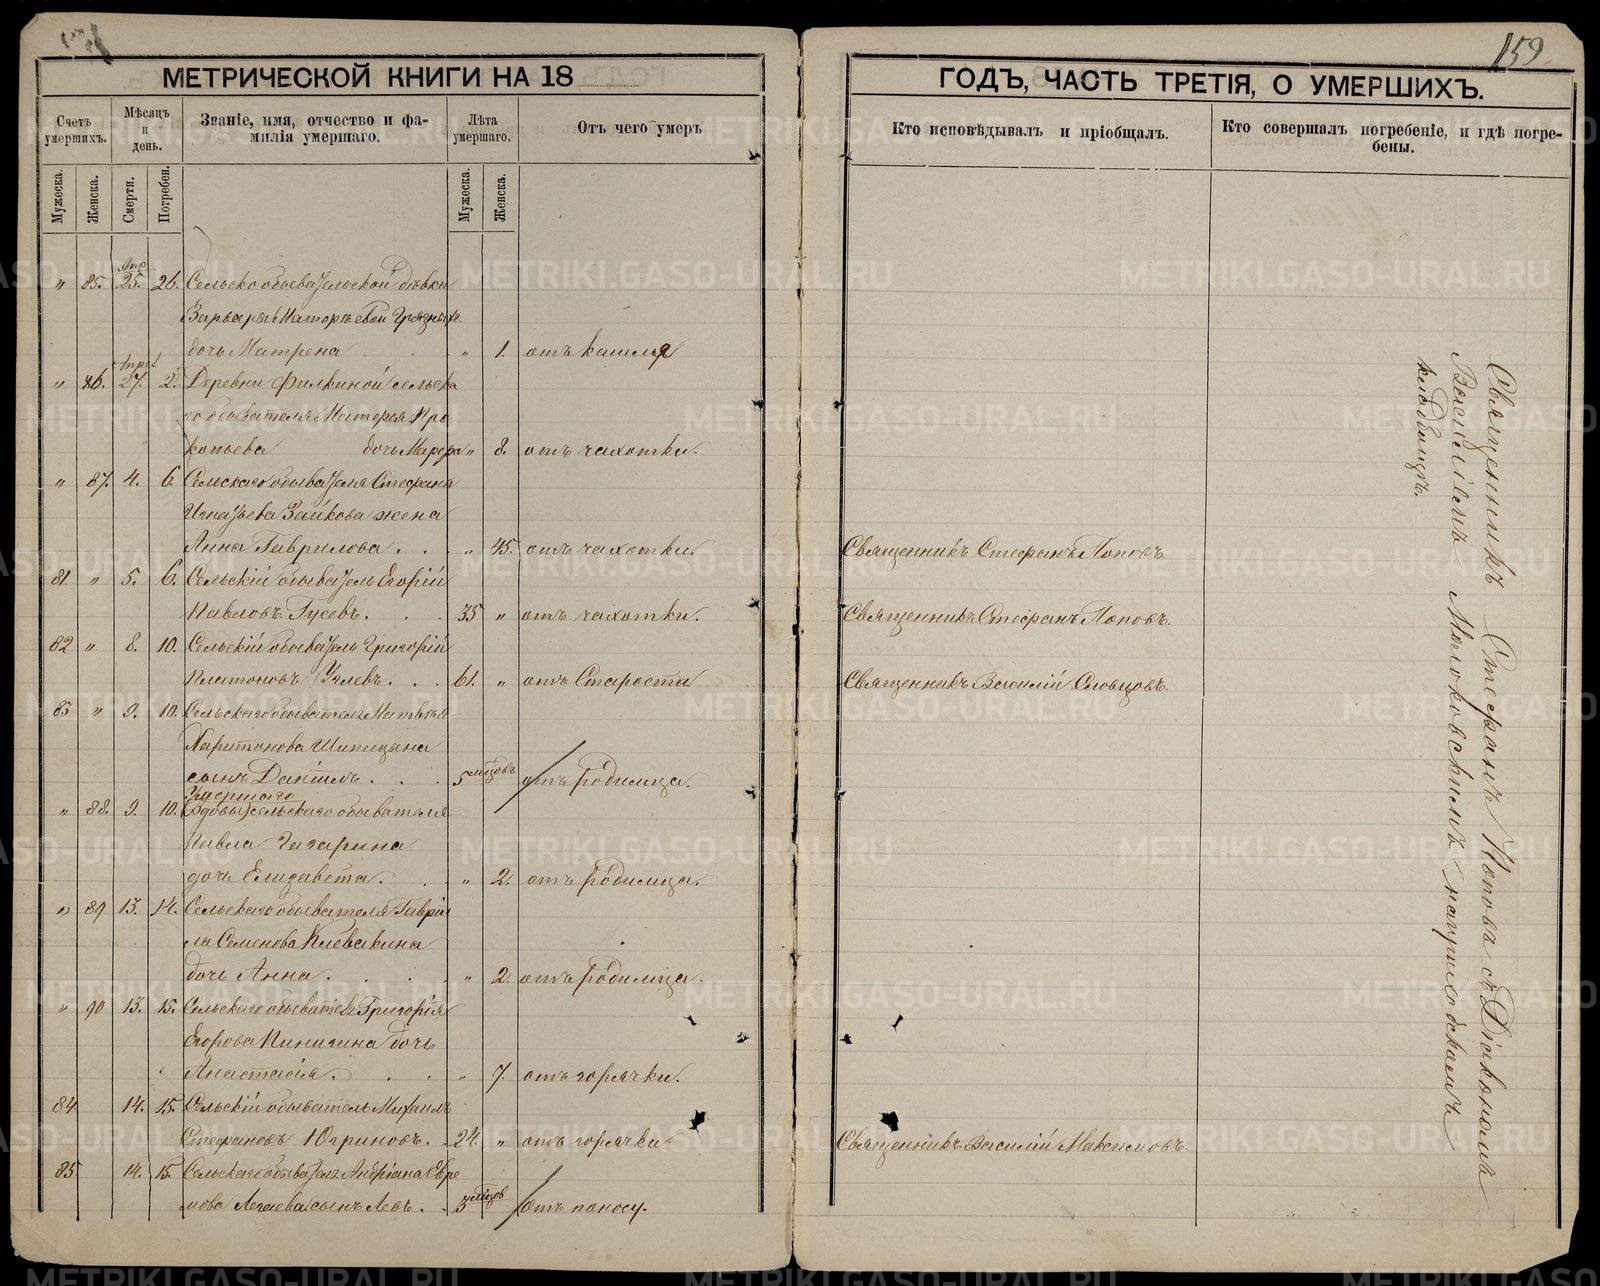 159
МЕТРИЧЕСКОЙ КНИГИ НА 18
ГОДЪ, ЧАСТЬ ТРЕТІЯ, О УМЕРШИХЪ.
Счетъ умершихъ.
Мѣсяцъ и день.
Званіе, имя, отчество и фа-
милія умершаго.
Лѣта умершаго.
Отъ чего умеръ
Кто исповѣдывалъ и пріобщалъ.
Кто совершалъ погребеніе, и гдѣ погре-
бены.
Мужеска.
Женска.
Смерти.
Погребен.
Мужеска.
Женска.
" 85. Апр 25. 26. Сельско обывательской дѣвки
Варвары
дочь Матрена . . " 1. отъ кашля
" 86. Апрел 27. 2. Деревни Филкиной сельска
го обывателя Про
копьева дочь " 8. отъ чахотки.
" 87. 4. 6. Сельскаго обывателя Стефана
Игнатьева Зайкова жена
Анна Гаврилова . . " 45. отъ чахотки. Священникъ Стефанъ Поповъ.
81 " 5. 6. Сельскій обыватель Егорій
Павловъ Гусевъ. . . 35 " отъ чахотки. Священникъ Стефанъ Поповъ.
82 " 8. 10. Сельскій обыватель Григорій
Платоновъ . . . 61. " отъ Старости Священникъ Василій Словцовъ.
83 " 9. 10. Сельскаго обывателя Матвѣя
Харитонова Шипицына
сынъ Даніилъ . . . 5 мцовъ отъ родимца.
Умершаго
" 88. 9. 10. Вдовы сельскаго обывателя
Павла Гагарина
дочь Елизавета. . . " 2. отъ родимца.
" 89 13. 14. Сельскаго обывателя Гаврі
ла Семенова Клевакина
дочь Анна . . . . " 2. отъ родимца.
" 90 13. 15. Сельскаго обывателя Григорія
Егорова Пинигина дочь
Анастасія . . . " 7. отъ горячки.
84 14. 15. Сельскій обыватель Михаилъ
Стефановъ Югриновъ. 24. " отъ горячки Священникъ Василій Максимовъ.
85 14. 15. Сельскаго обывателя Андріана Ефре
мова сынъ Левъ . . 3 мцов отъ поносу.
Священникъ Стефанъ Поповъ съ Діакономъ
Василіемъ Маляковскимъ на приходскомъ
кладбищѣ.
METRIKI.GASO-URAL.RU